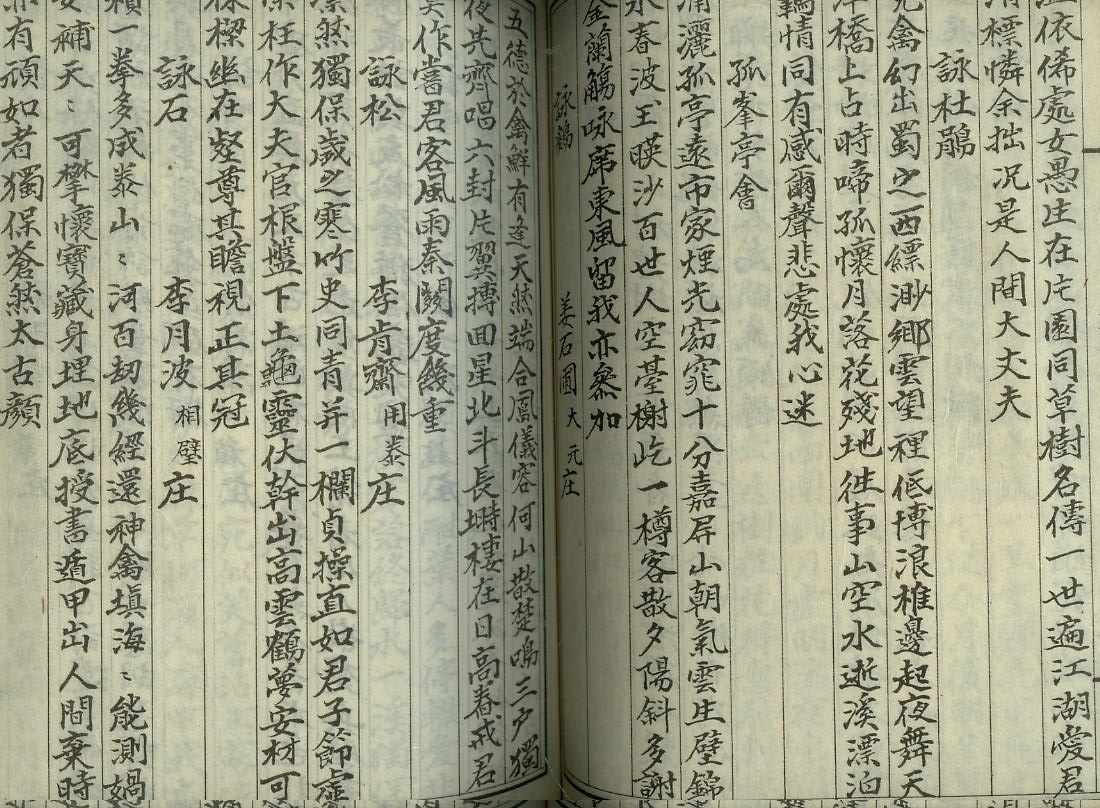 依俙處女愚庄在片園同草樹名傳一世遍江湖愛君
清標憐余拙况是人間大丈夫
詠杜鵑
禽幻出蜀之西縹渺鄉雲望裡低博浪椎邊起夜舞天
津橋上占時啼孤懷月落花殘地徃事山空水逝溪漂泊
情同有感爾聲悲處我心迷
孤峯亭會
灑孤亭遠市家煙光窈窕十分嘉屏山朝氣雲生壁錦
水春波玉暎沙百世人空臺榭屹一樽客散夕陽斜多謝
金蘭觴咏席東風留我亦叅加
詠鷄 姜石圃 大元庄
五德於禽鮮有逢天然端合鳳儀容何山散楚鳴三夕獨
夜先齊唱六封片翼搏回星北斗長塒棲在日高舂戒君
莫作嘗君客風雨秦關度幾重
詠松 李肯齋 用泰庄
然獨保歲之寒竹史同青并一欄貞操直如君子節虛
榮枉作大夫官根盤下土龜靈伏幹出高雲鶴夢安材可
樑幽在壑尊其瞻視正其冠
詠石 李月波 相璧庄
積一拳多成泰山〻河百劫幾經還神禽塡海〻能測媧
女補天〻可攀懷寶藏身埋地底授書遁甲出人間棄時
亦有頑如者獨保蒼然太古顏